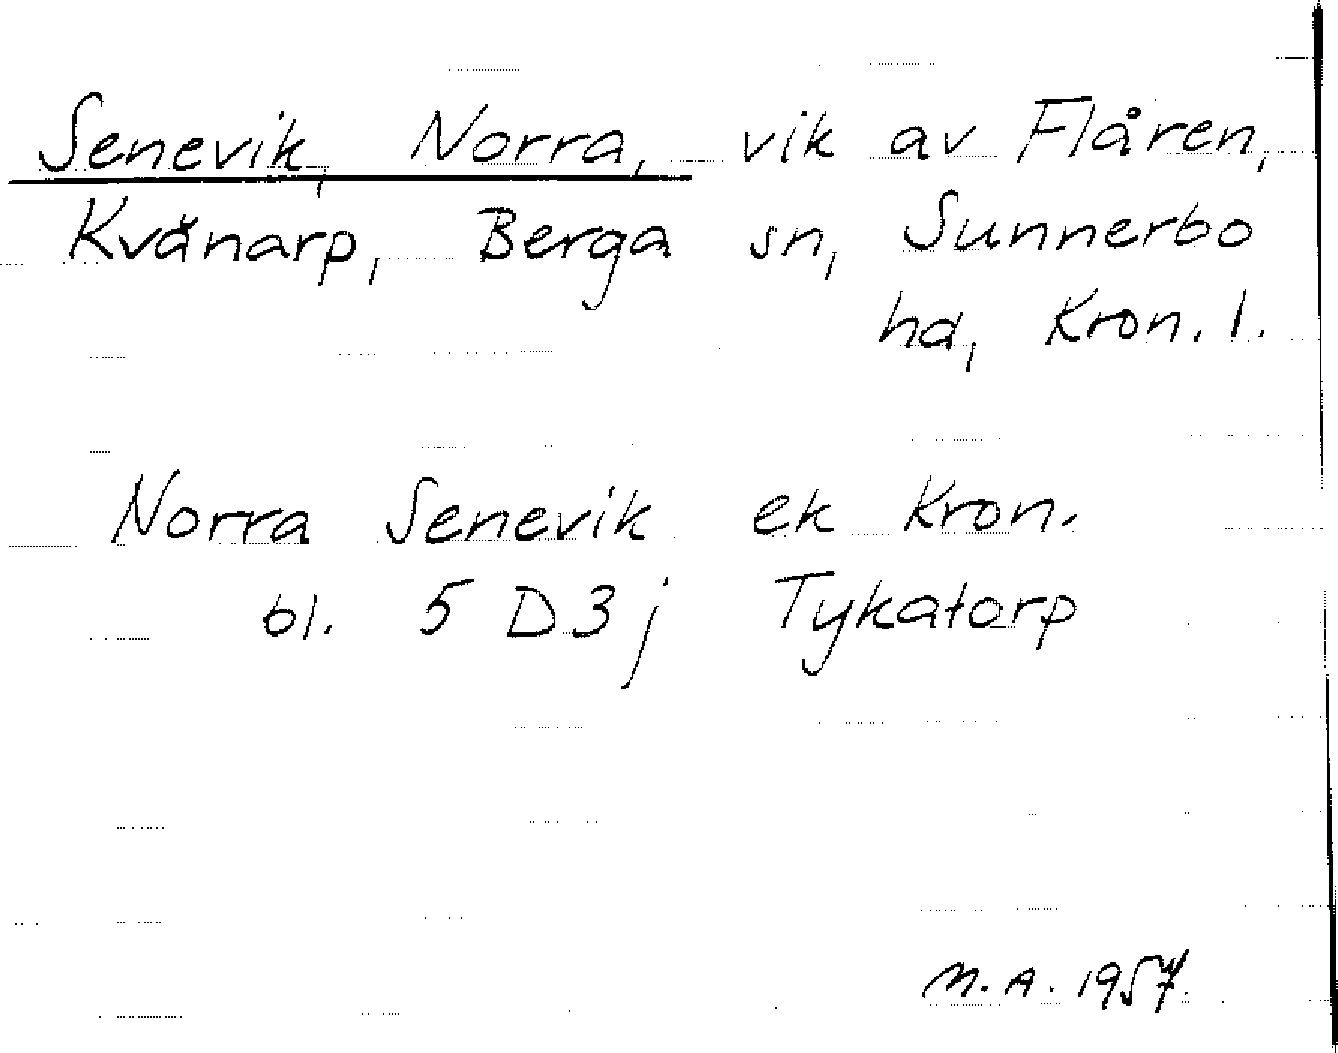 Senevik, Norra, vik av Flåren,
Kvänarp, Berga sn, Sunnerbo
hd, Kron. l.
Norra Senevik ek Kron.
bl. 5 D 3 j Tykatorp
M. A. 1957.